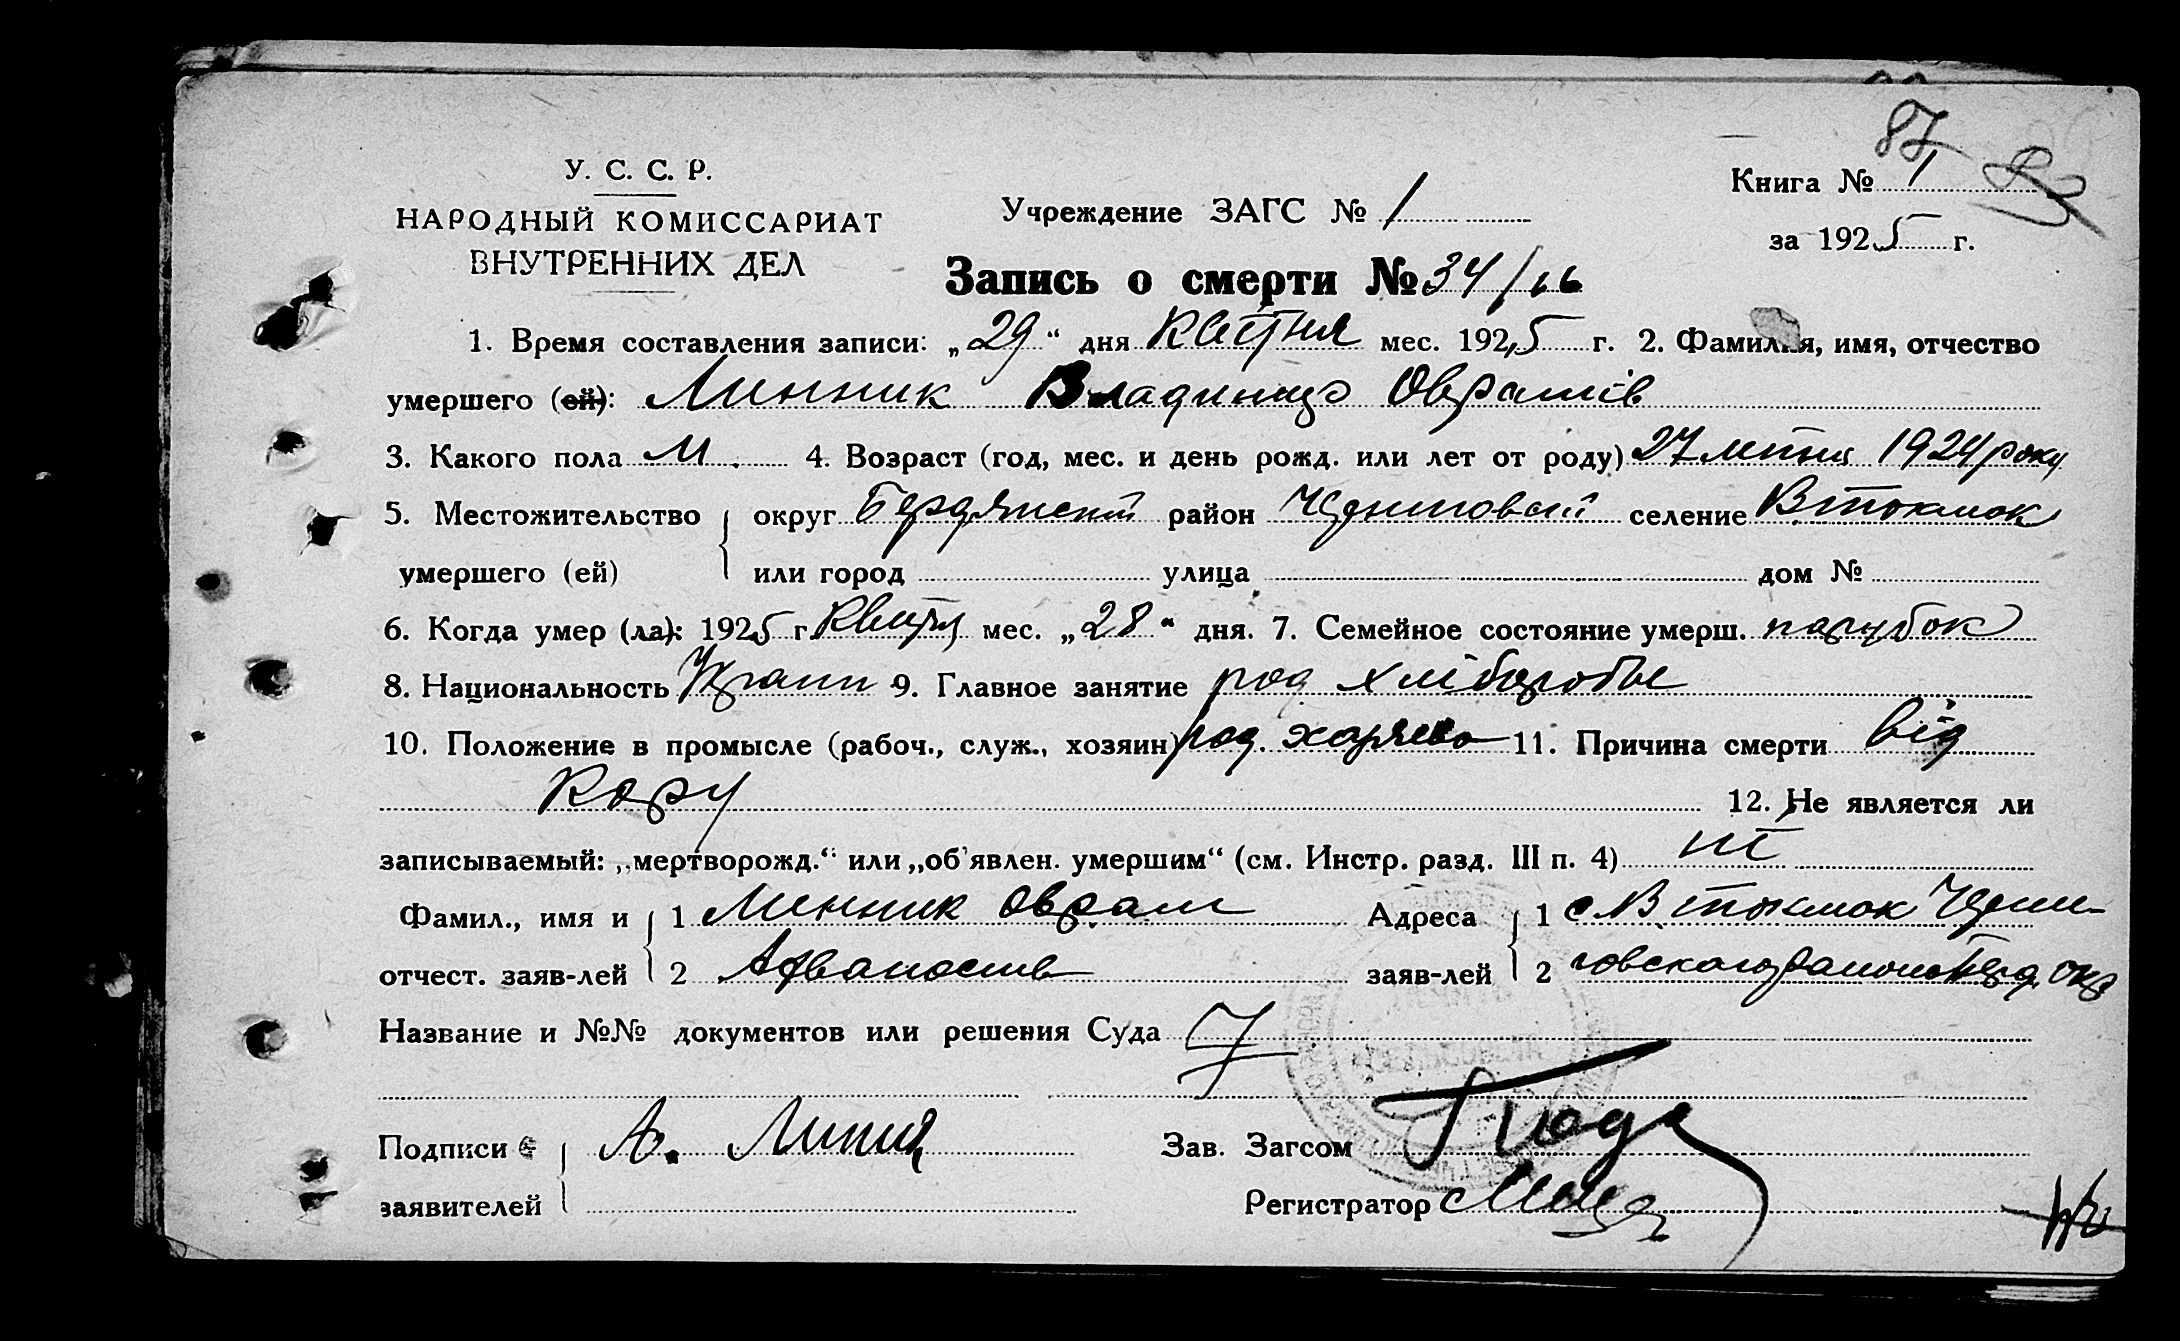 87
83
У. С. С. Р.
НАРОДНЫЙ КОМИССАРИАТ
ВНУТРЕННИХ ДЕЛ
Учреждение ЗАГС № 1
Книга № 1
за 1925 г.
Запись о смерти № 34/16
1. Время составления записи: „29“ дня Квітня мес. 1925 г. 2. Фамилия, имя, отчество
умершего (ей): Линник Владимир Оврамів
3. Какого пола М. 4. Возраст (год, мес. и день рожд. или лет от роду) 27 1924 року
5. Местожительство округ Бердянский район селение В токмак
умершего (ей) или город улица дом №
6. Когда умер (ла): 1925 г. Квітня мес. „28“ дня. 7. Семейное состояние умерш. парубок
8. Национальность Украин 9. Главное занятие род хлібороби
10. Положение в промысле (рабоч., служ., хозяин) род. 11. Причина смерти від
Кору
12. Не является ли
записываемый: „мертворожд.“ или „об'явлен. умершим“ (см. Инстр. разд. III п. 4) ні
Фамил., имя и 1 Линник Оврам Адреса 1 с. В токмак
отчест. заяв-лей 2 заяв-лей 2
Название и №№ документов или решения Суда
Подписи А. Линик Зав. Загсом
заявителей Регистратор